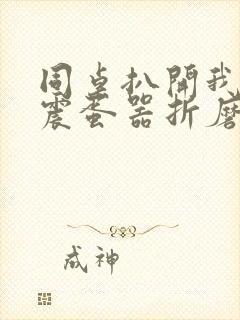 同桌扒開我
震蛋器折磨
成神